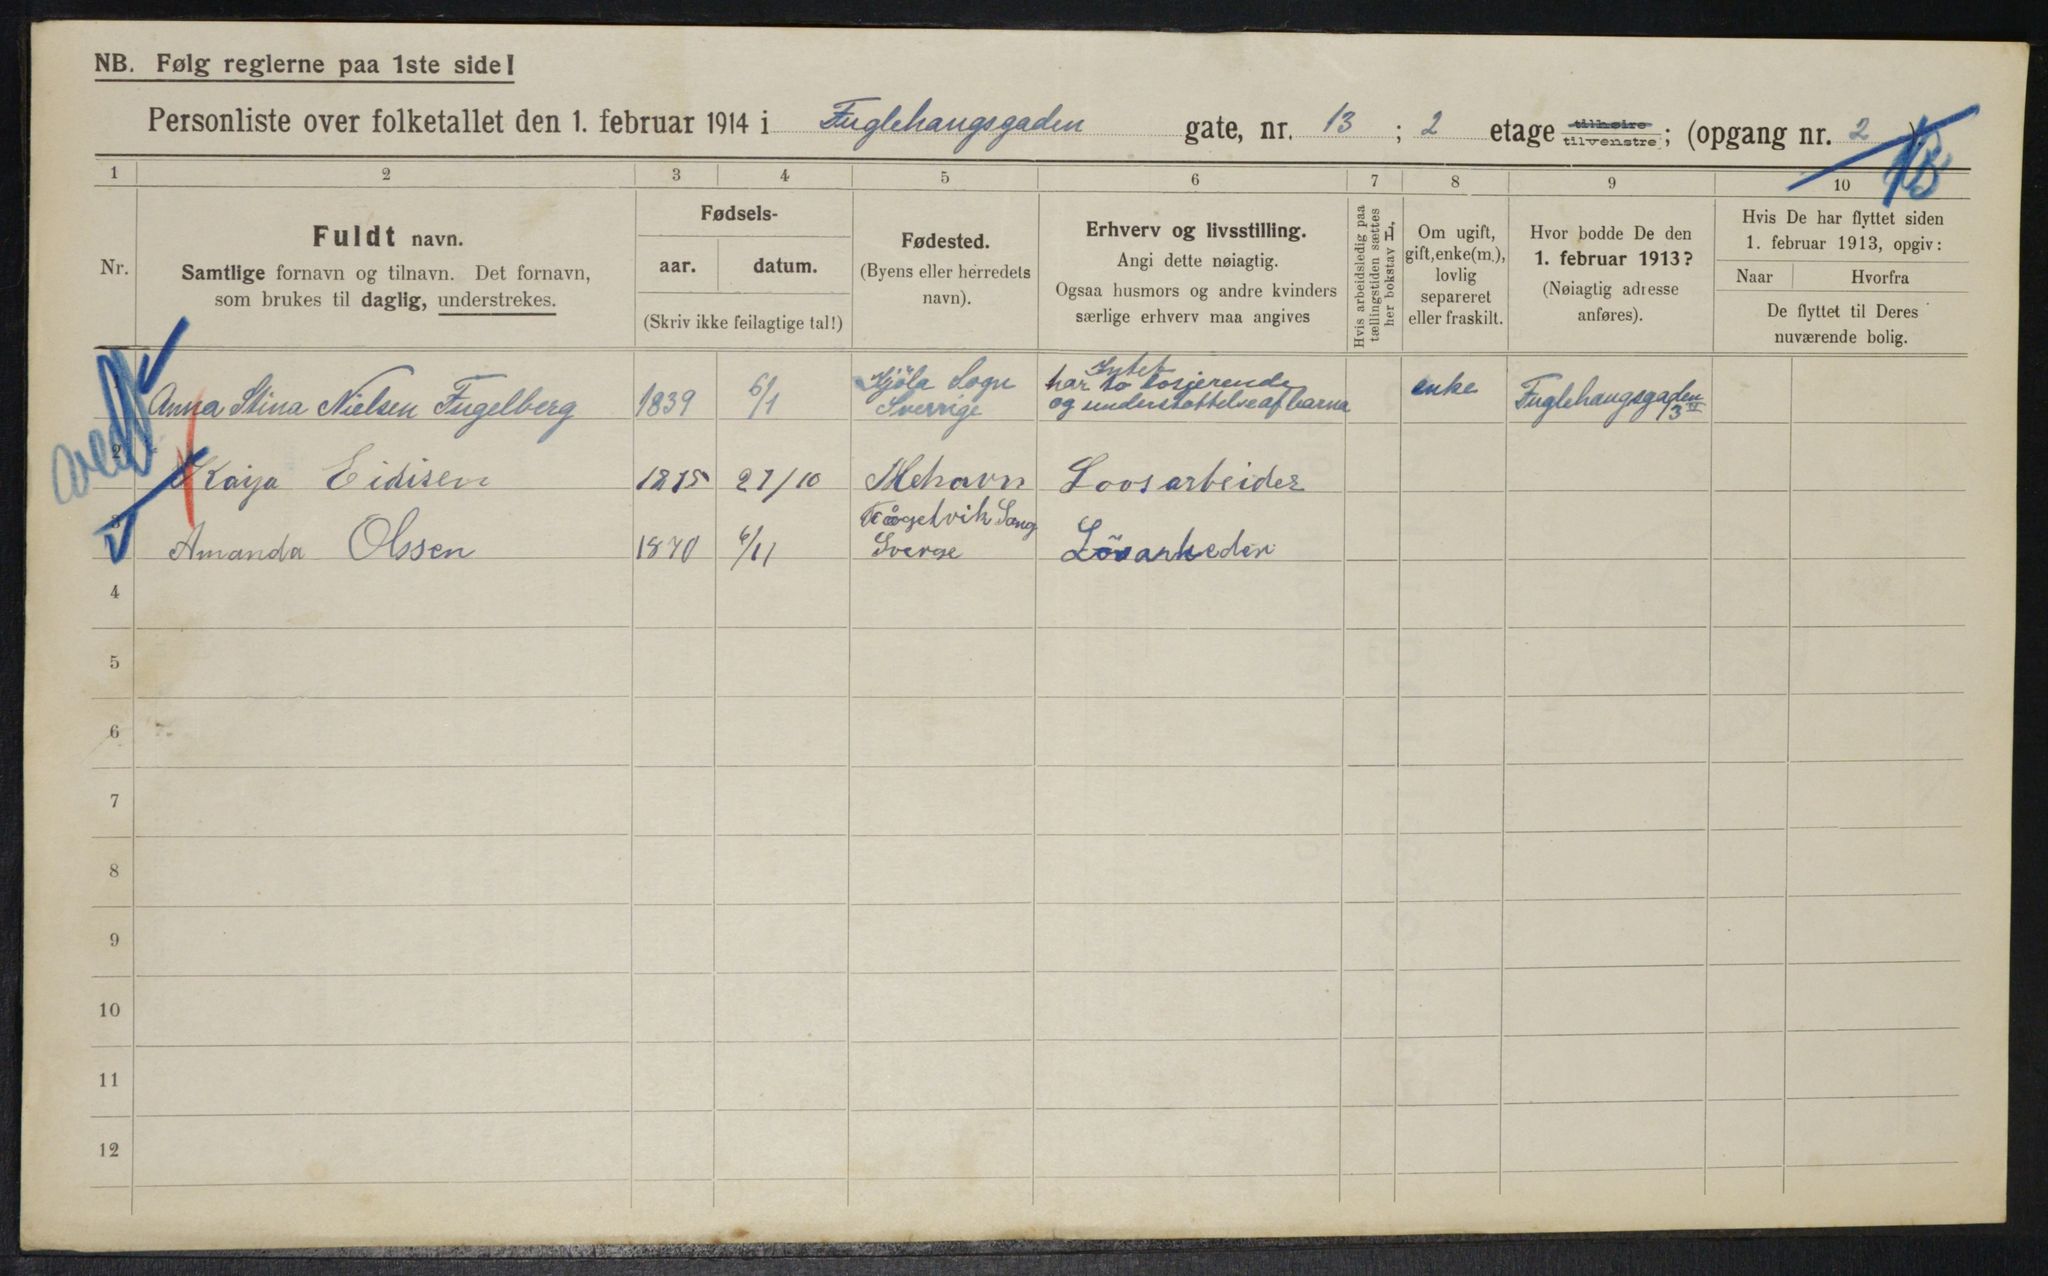 NB. Følg reglerne paa 1ste side!
Personliste over folketallet den 1. februar 1914 i Fuglehaugsgaden gate, nr. 13 ; 2 etage tilhøire tilvenstre ; (opgang nr. 2 )
1 2 3 4 5 6 7 8 9 10
Nr.
Fuldt navn.
Samtlige fornavn og tilnavn. Det fornavn,
som brukes til daglig, understrekes.
Fødsels-
aar. datum.
(Skriv ikke feilagtige tal!)
Fødested.
(Byens eller herredets
navn).
Erhverv og livsstilling.
Angi dette nøiagtig.
Ogsaa husmors og andre kvinders
særlige erhverv maa angives
Hvis arbeidsledig paa
tællingstiden sættes
her bokstav L.
Om ugift,
gift, enke(m.),
lovlig
separeret
eller fraskilt.
Hvor bodde De den
1. februar 1913?
(Nøiagtig adresse
anføres).
Hvis De har flyttet siden
1. februar 1913, opgiv:
Naar Hvorfra
De flyttet til Deres
nuværende bolig.
1 Anna Stina Nielsen Fugelberg 1839 6/1 Sogn Sverrige
Intet
har to losjerende
og understøttelse af barna
enke Fuglehaugsgaden
13 II
2 Kaja Eidisen 1875 27/10 Mehavn Loosarbeider
3 Amanda Olssen 1870 6/11
Sverge
4
5
6
7
8
9
10
11
12